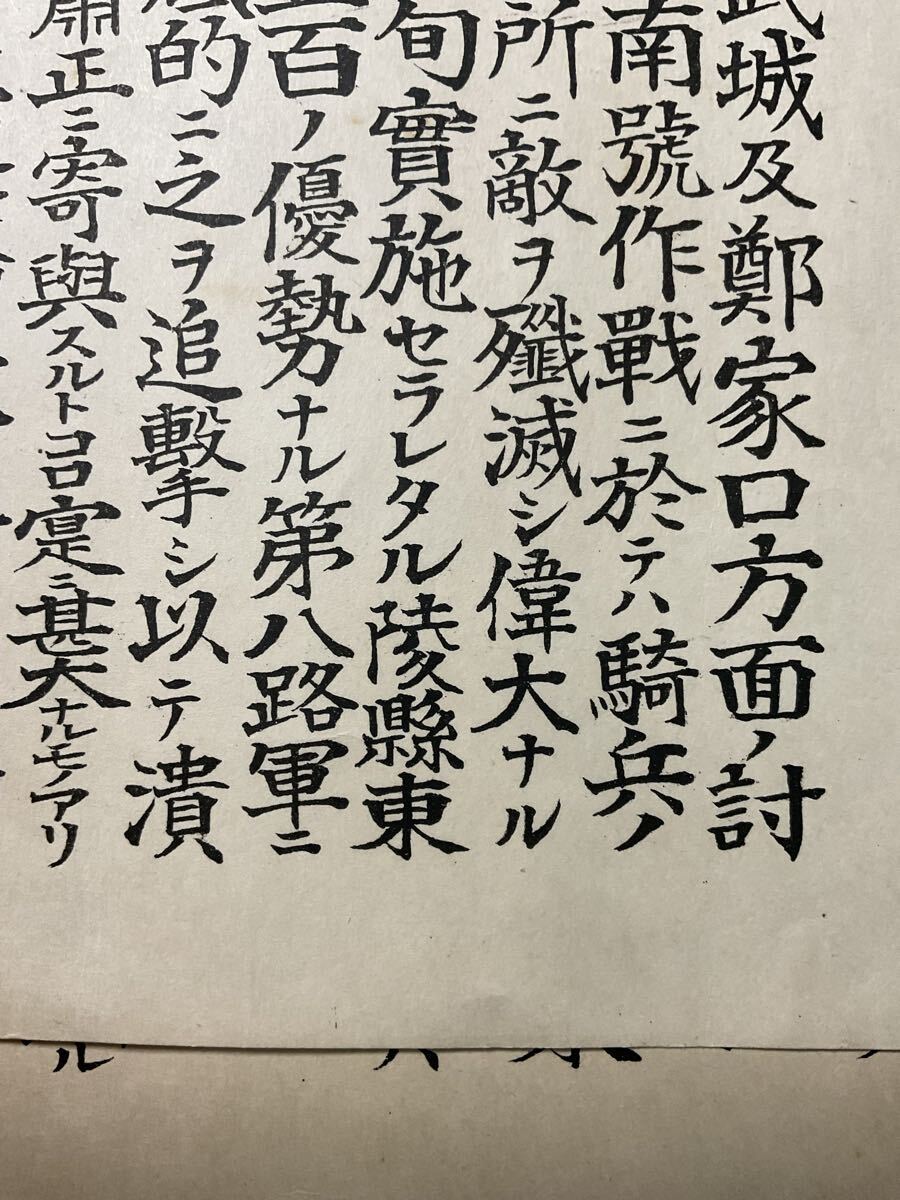 武城及鄭家口方面ノ討
南號作戰ニ於テハ騎兵ノ
所ニ敵ヲ殲滅シ偉大ナル
旬實施セラレタル陵縣東
百ノ優勢ナル第八路軍ニ
底的ニ之ヲ追擊シ以テ潰
肅正ニ寄與スルトコロ寔ニ甚大ナルモノアリ